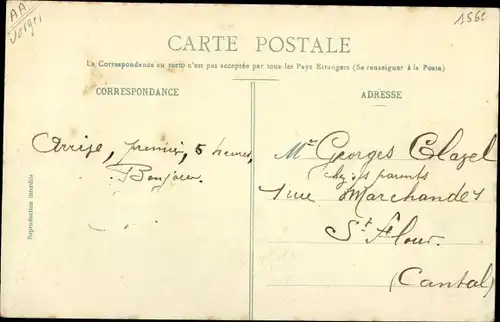 AA
Vosges
1562
CARTE POSTALE
La Correspondance au recto n'est pas acceptée par tous les Pays Etrangers (Se renseigner à la Poste)
CORRESPONDANCE
ADRESSE
Arrive, premier, 5 heures,
Bonjour.
Mr Georges Clazel
chez ses parents
1 rue Marchande
St Flour.
(Cantal)
Reproduction interdite